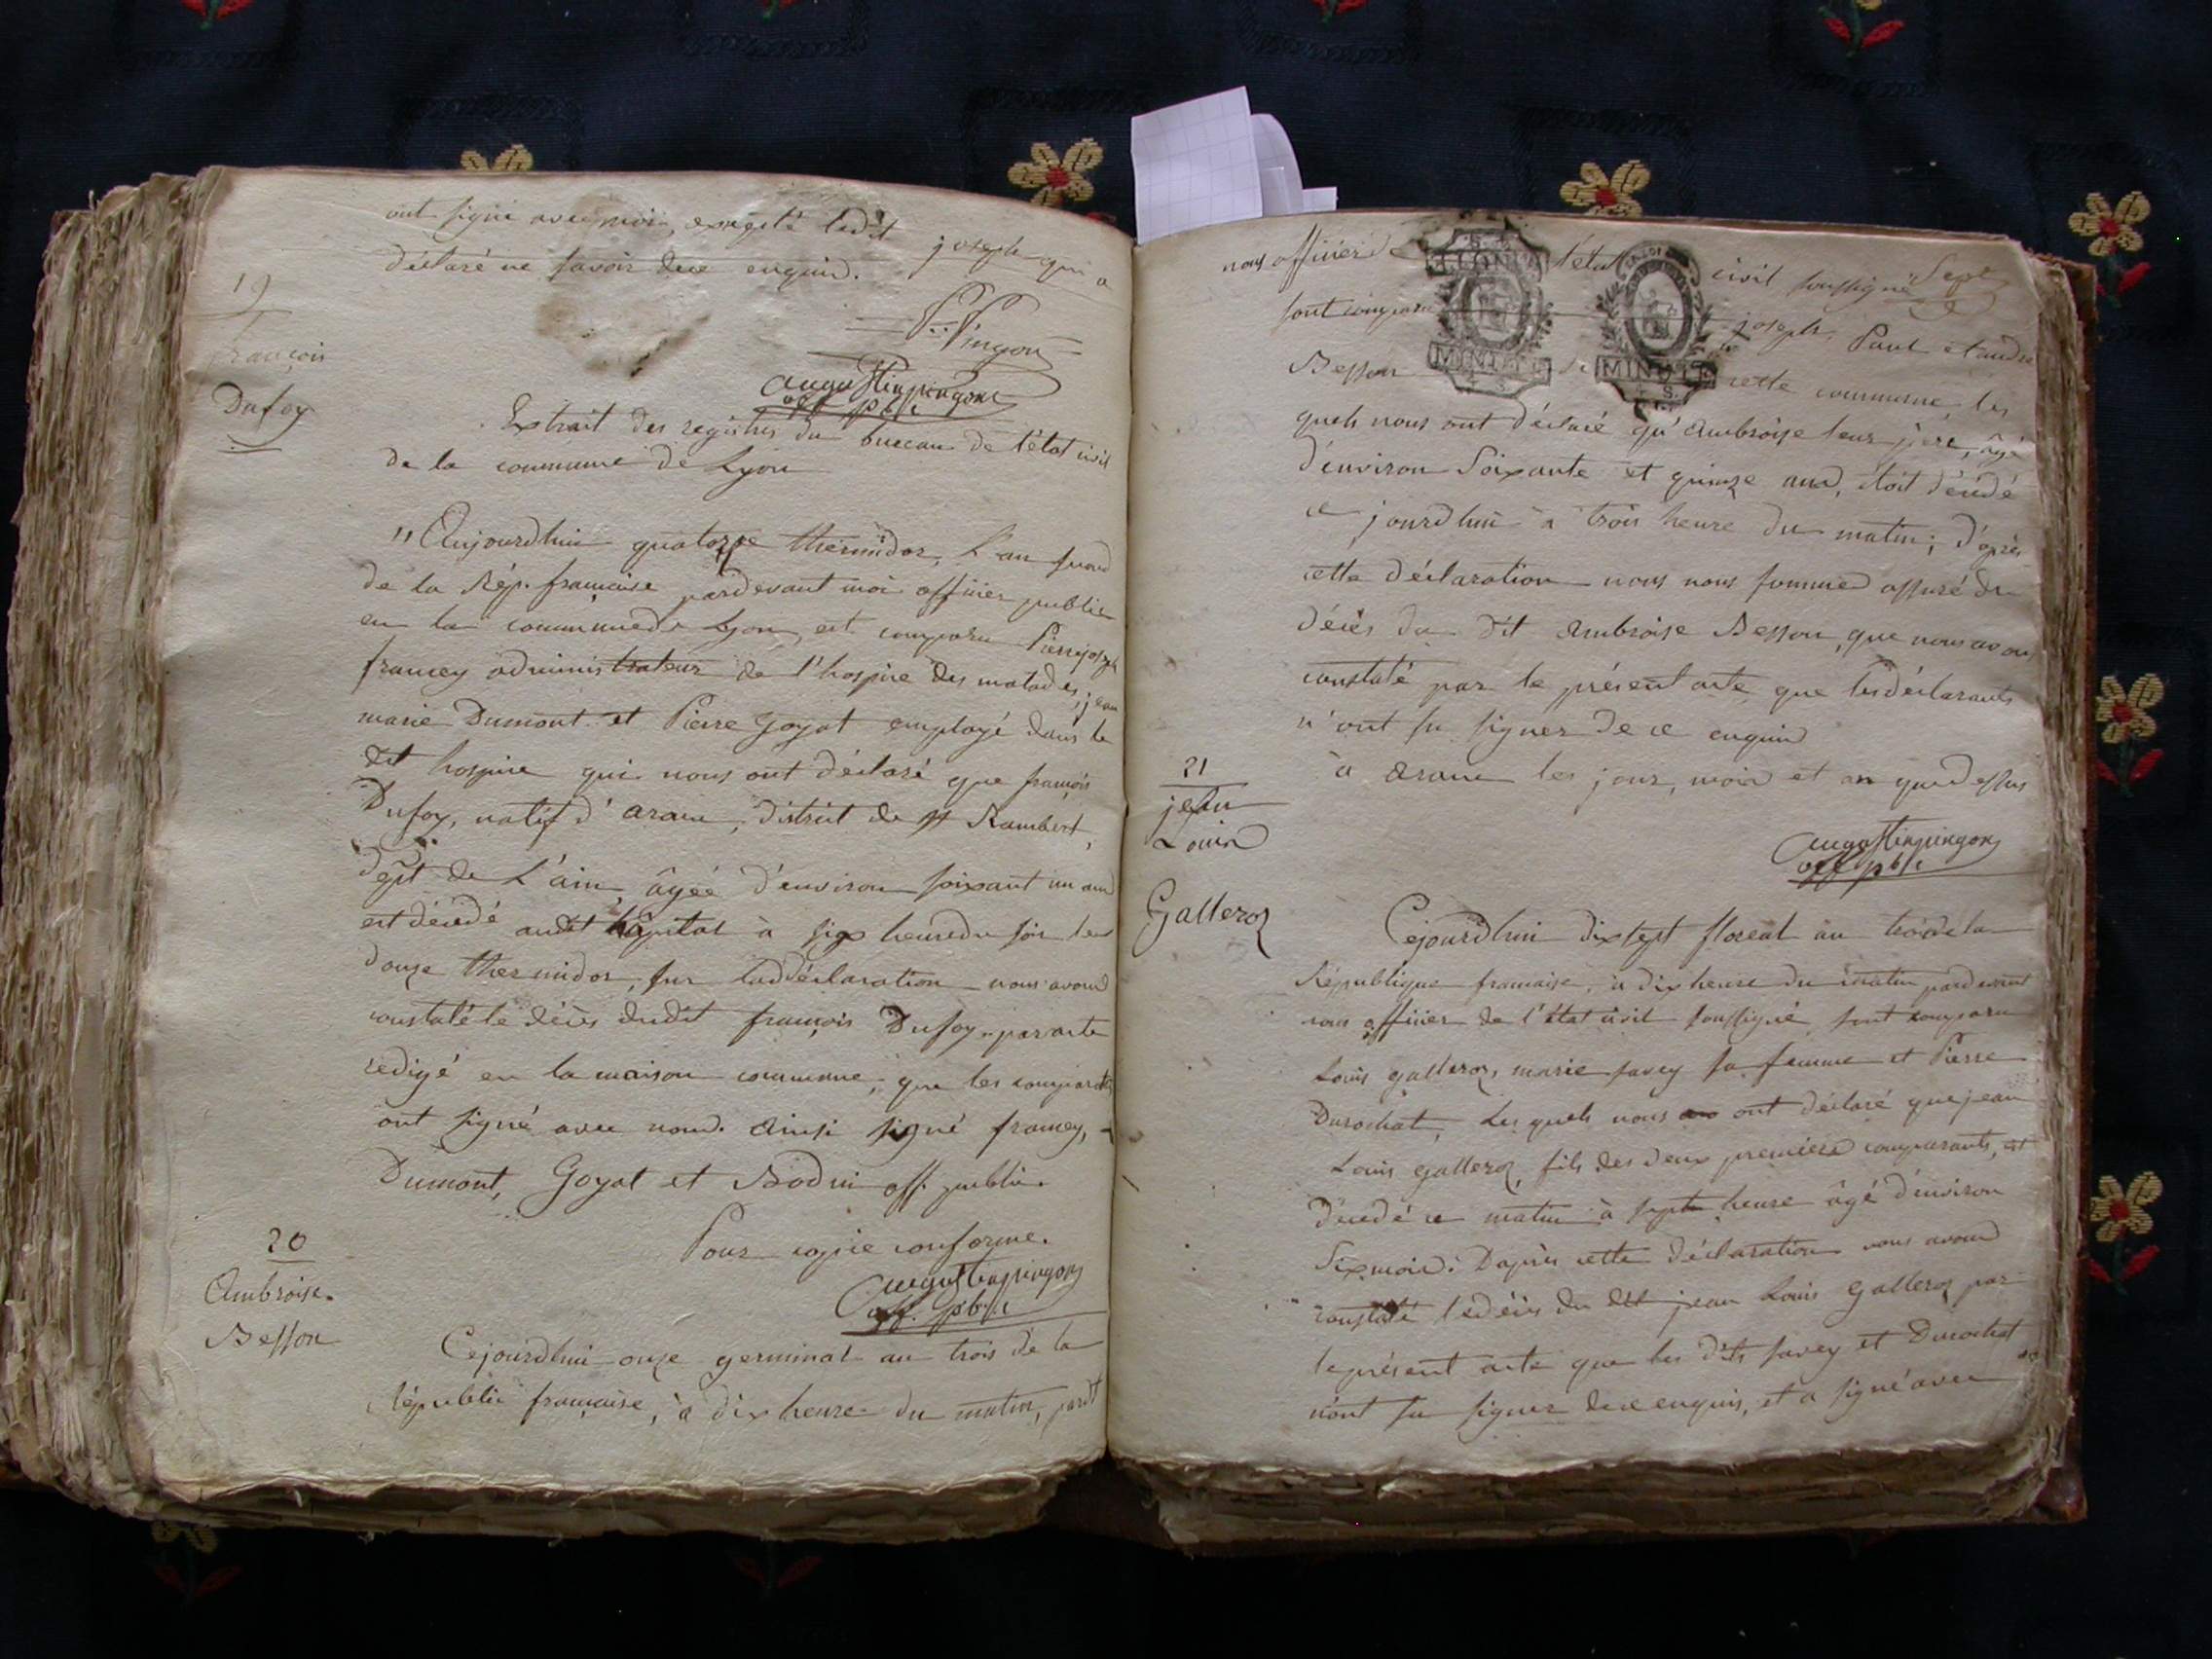 ont signé avec moi, excepté ledit joseph qui a
déclaré ne savoir dece enquis.
P. Pingon
augustinpingon
off pblic
19
françois
Dufoy
Extrait des registres du bureau de l'état civil
de la commune de Lyon
"Aujourdhui quatorze thermidor, L'an second
de la Rép. française pardevant moi officier public
en la commune de Lyon, est comparu Pierrejoseph
francey administrateur de l'hospice des malades, jean
marie Dumont et Pierre Goyat employé dans le
dit hospice qui nous ont déclaré que françois
Dufoy, natif d'aranc, district de st Rambert,
dept de L'ain, âgéé d'environ soixant un ans
est décédé audit hôpital à six heures du soir le
douze thermidor, sur laddéclaration nous avons
constaté le décès dudit françois Dufoy par acte
redigé en la maison commune, que les comparants
ont signé avec nous. ainsi signé francey,
Dumont, Goyat et Bodin off. public.
Pour copie conforme.
augustinpingon
off. pblic
20
Ambroise
Besson
Cejourdhui onze germinal an trois de la
Républic française, à dix heure du matin, pardt
Sept
nous officier d l'état civil soussigné
sont comparu joseph, Paul et andré
Besson de cette commune, les
quels nous ont déclaré qu'ambroise leur père, âgé
d'environ soixante et quinze ans, étoit décédé
ce jourdhui à trois heure du matin; d'après
cette déclaration nous nous sommes assuré du
décès du dit ambroise Besson, que nous avons
constaté par le présent acte, que les déclarants
n'ont su signer de ce enquis
à aranc les jour, mois et an que dessus
augustinpingon
off pblic
21
jean
Louis
Galleroz
Cejourdhui dix sept floreal an trois de la
République française, à dix heure du matin pardevant
nous officier de l'état civil soussigné sont comparu
Louis galleroz, marie savey sa femme et Pierre
Durochat, Les quels nous ont déclaré que jean
Louis galleroz, fils des deux premiers comparants, est
décédé ce matin à sept heure âgé d'environ
six mois. Daprès cette déclaration nous avons
constaté le décès du dit jean Louis galleroz par
le présent acte que les dits savey et Durochat
n'ont su signer de ce enquis, et a signé avec